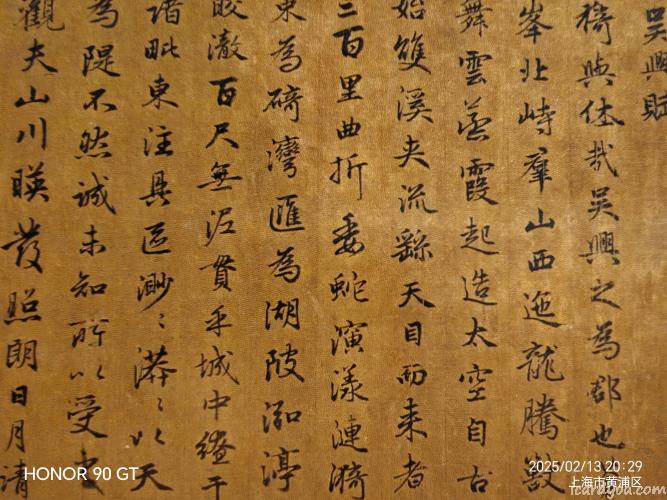 吳興賦
猗與休哉吳興之為郡也
峯北峙羣山西迤龍騰獸
舞雲蒸霞起造太空自古
始雙溪夾流繇天目而來者
三百里曲折委蛇演漾漣漪
東為碕灣匯為湖陂泓渟
皎澈百尺無泥貫乎城中繚于
諸毗東注具區渺〻漭〻以天
為隄不然誠未知所以受之
觀夫山川暎發照朗日月清
HONOR 90 GT
2025/02/13 20:29
上海市黄浦区
tcaragou.com